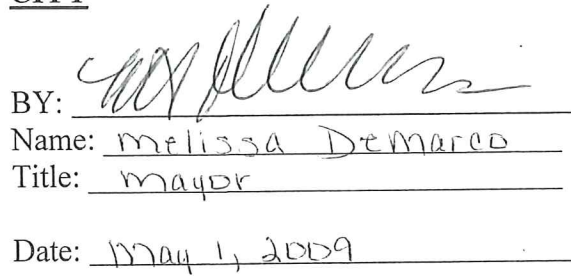 CITY
BY:
Name: Melissa DeMarco
Title: Mayor
Date: May 1, 2009